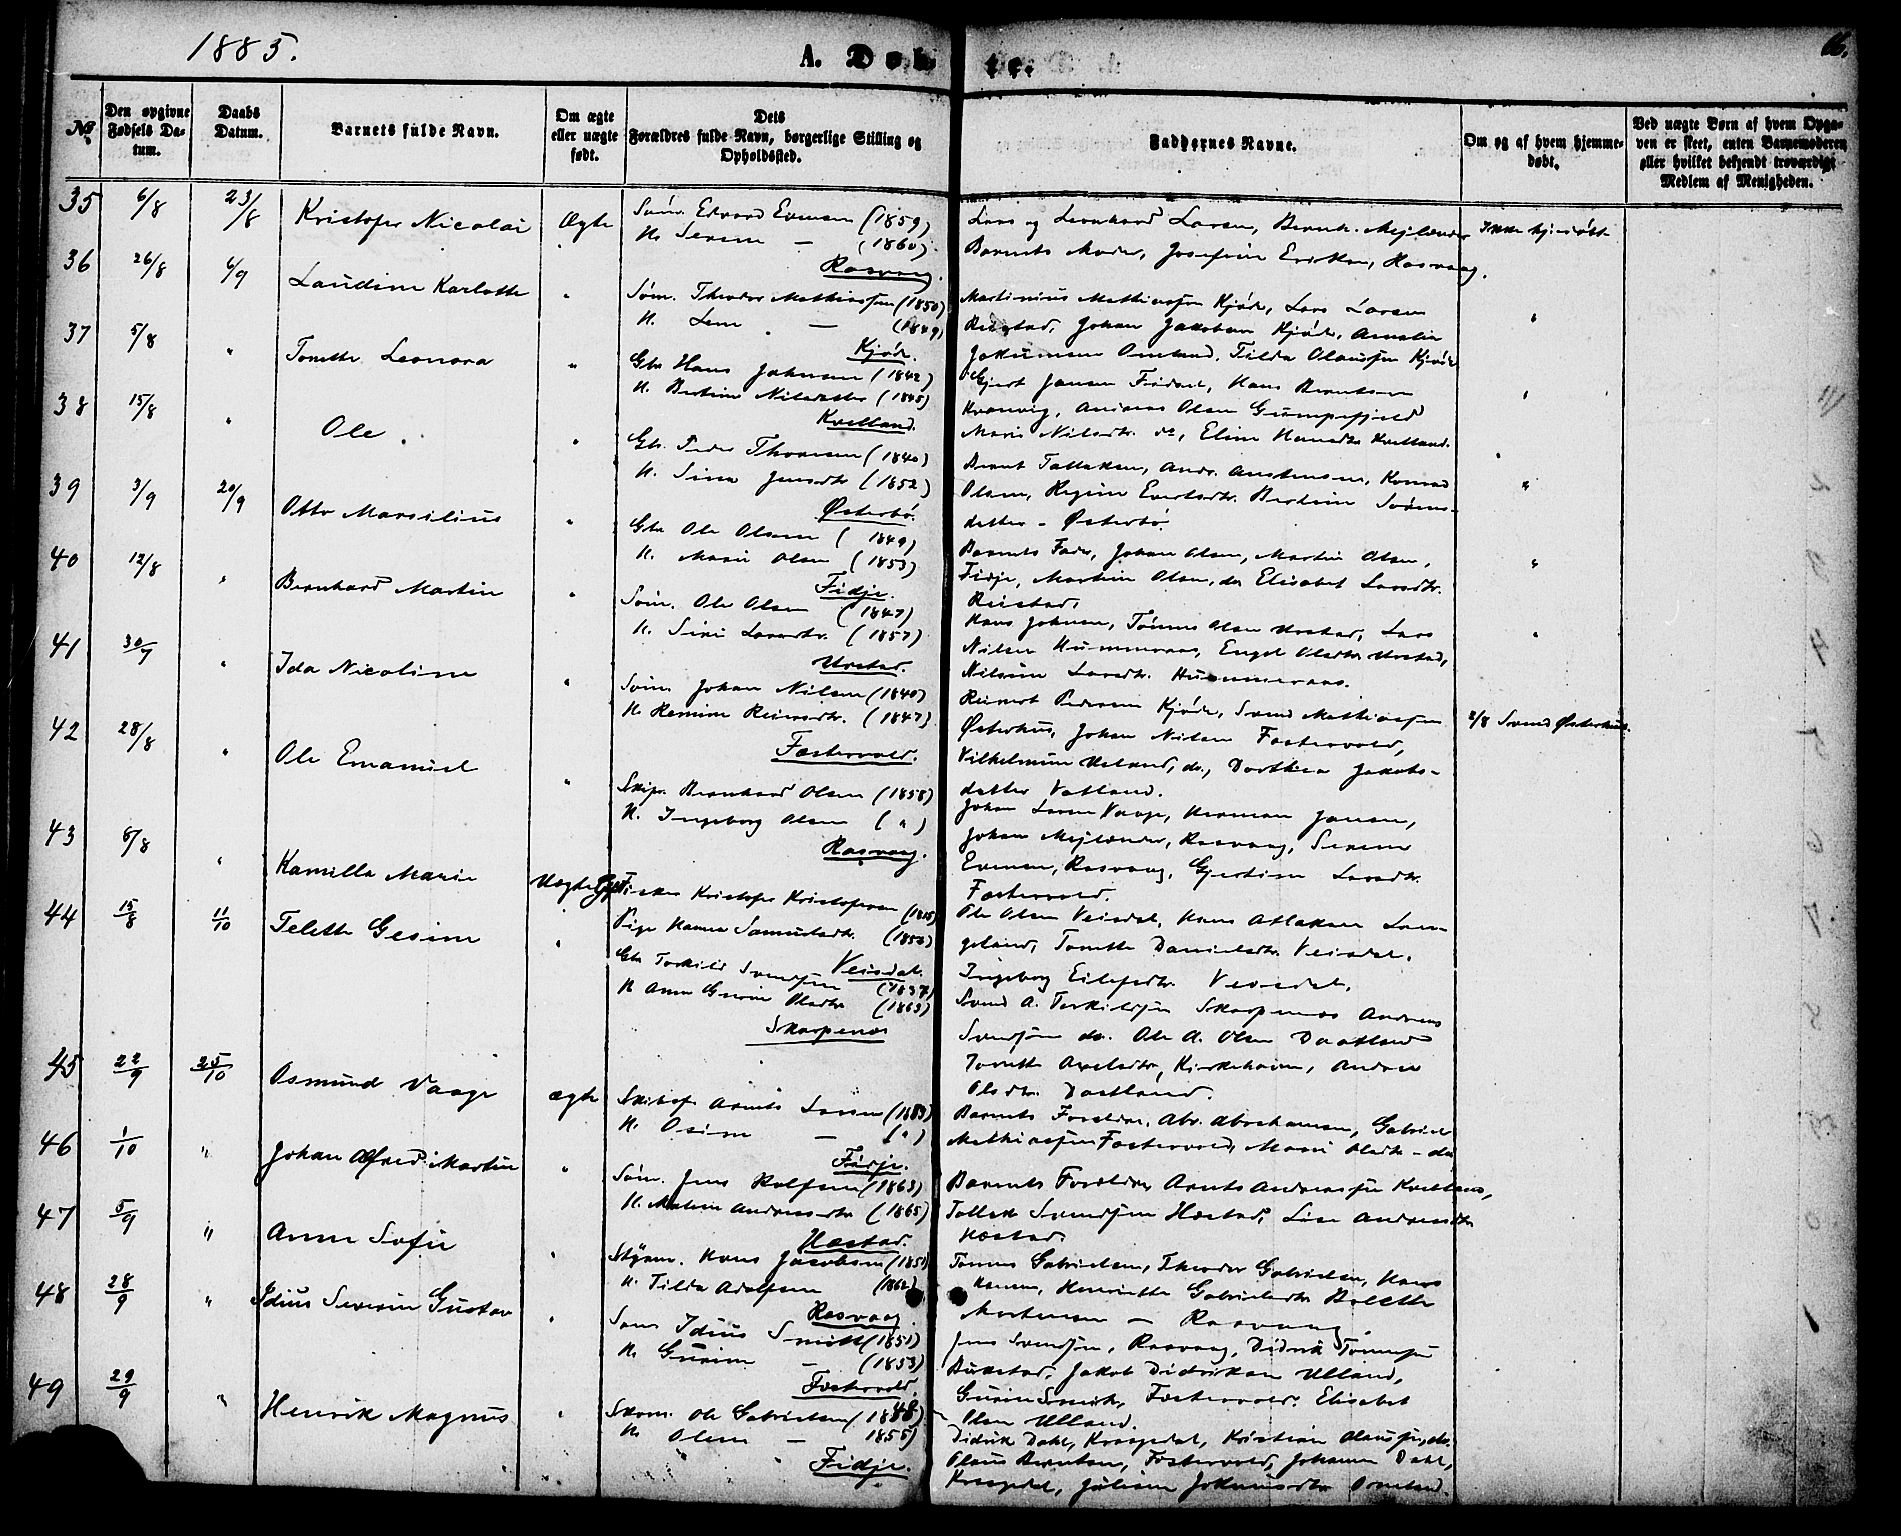 1885.
A. Døbte.
66.
№
Den opgivne Fødsels Datum.
Daabs Datum.
Barnets fulde Navn.
Om ægte eller uægte født.
Dets Forældres fulde Navn, borgerlige Stilling og Opholdssted.
Faddernes Navne.
Om og af hvem hjemmedøbt.
Ved uægte Børn af hvem Opgaven er skeet, enten Barnemoderen eller hvilket bekjendt troværdigt Medlem af Menigheden.
35 6/8 23/8 Kristofer Nicolai Ægte
(1859)
H. Serene — (1860)
Rasvaag.
Lars og Leonhard Larsen, Bernh. Mejlænder
Barnets Moder, Josefine Eriksen, Rasvaag.
36 26/8 6/9 Laudine Karlotte "
Søm. Theodor Mathiassen (1850)
H. Lene — (1849)
Kjøde.
Martinius Mathiassen Kjøde, Lars Larsen
Johan Jakobsen Kjøde, Amalia
Tilda Olaussen Kjøde
37 5/8 " Tonette Leonora "
Gbr Hans Johnsen (1842)
H. Bertine Nilsdatter (1845)
Kvelland.
Gjert Jansen Hans Berntsen
Andreas Olsen Gumpefjeld
Marie Nilsdtr. do, Eline Hansdtr Kvelland.
38 15/8 " Ole. "
Gbr. Peder Thorsen (1840)
H. Sina Jensdtr (1852)
Østerbø.
Bernt Tallaksen, Andr. Konrad
Olsen, Regine Bertine Sørens-
datter - Østerbø.
39 3/9 20/9 Otto Marsilius "
Gbr Ole Olsen (1849)
H. Marie Olsen (1853)
Fidje.
Barnets Fader, Johan Olsen, Martin Olsen,
Fidje, Martine Olsen, do Elisabet Larsdtr.
40 12/8 " Bernhard Martin "
Søm. Ole Olsen (1847)
H. Siri Larsdtr. (1857)
Urstad.
Hans Johnsen, Tønnes Olsen Urstad, Lars
Nilsen Hummeraas, Engel Olsdtr Urstad,
Larsdtr. Hummeraas.
41 30/7 " Ida Nicoline "
Søm. Johan Nilsen (1840)
H. Remine (1847)
Fæstervold.
Reinert Pedersen Kjøde, Svend Mathiassen
Østerhus, Johan Nilsen Fæstervold,
Vilhelmine do., Dorthea Jakobs-
datter Vatland.
2/8 Svend Østerhus.
42 28/8 " Ole Emanuel "
Skipr. Bernhard Olsen (1858)
H. Ingeborg Olsen ( " )
Rasvaag.
Johan Larsen Vaage, Herman Jansen,
Johan Mejlænder, Rasvaag, Serene
Rasvaag, Gjertine Larsdtr.
Fæstervold.
43 6/8 " Kamilla Marie Uægte
Kristofer Kristofersen
Pige Hanna Samuelsdtr. (1850)
Veisdal.
Ole Olsen Veisdal, Hans Atlaksen Lan-
geland, Tonette Danielsdtr. Veisdal,
Ingeborg Eilefsdtr. Veisdal.
44 15/8 11/10 Telette Gesine "
Gbr Torkild Svendsen (1837)
H Anne Gurine Olsdtr (1863)
Skarpenæs
Svend A. Torkildsen Skarpenæs Andreas
Svendsen do. Ole A. Olsen
Tonette Kirkehavn, Andrea
Olsdtr.
45 22/9 25/10 Osmund Vaage ægte
Larsen
H. Osine — ( " )
Fidje.
Barnets Forældre, Abr. Abrahamsen, Gabriel
Mathiassen Fæstervold, Marie Olsdtr - do
46 1/10 " Johan Alfred Martin "
Søm. Jens Rolfsen (1863)
H. Malene Andreasdtr (1865)
Hæstad.
Barnets Forældre Arnts Andreassen
Tallak Svendsen Hæstad, Lise Andreasdtr
Hæstad.
47 5/9 " Anne Sofie "
Styrm. Hans Jacobsen
H. Tilda Adolfsen (1862)
Rasvaag.
Tønnes Gabrielsen, Theodor Gabrielsen, Hans
Hansen, Henriette Gabrielsdtr Bolette
Mortensen — Rasvaag.
48 28/9 " Idius Severin Gustav "
Søm Idius Smith (1851)
H. Gurine — (1853)
Fæstervold.
Jens Svendsen, Rasvaag, Didrik Tønnesen
Jakob Didriksen Ulland,
Gurine Smith, Fæstervold. Elisabet
Olsen Ulland.
49 29/9 " Henrik Magnus "
Ole Gabrielsen (1848)
H. Olene — 1855)
Fidje.
Didrik Dahl, Kragedal, Kristian Olaussen, do.
Olaus Berntsen, Fæstervold, Johanne Dahl,
Kragedal, Juliane